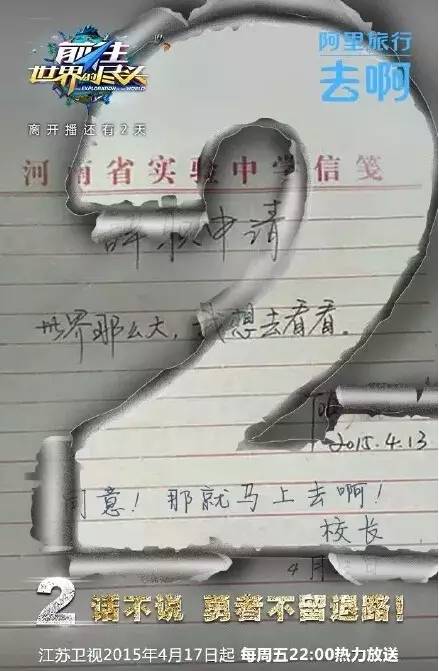 前往
世界的尽头
EXPLORATION OF THE WORLD
阿里旅行
去啊
离开播还有2天
河南省实验中学信笺
辞职申请
世界那么大,我想去看看。
2015.4.13
同意!那就马上去啊!
校长
4月
2话不说 勇者不留退路!
江苏卫视2015年4月17日起 每周五22:00热力放送